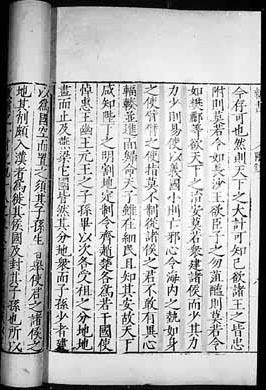 令存可也然則天下大計可知已欲諸王皆忠
附則莫若令如長沙王欲臣子之勿菹醢則莫若令
如樊酈等欲天下之治安莫若衆建諸侯而少其力
力少則易使以義國小則亡邪心令海内之勢如身
之使臂臂之使指莫不制從諸侯之君不敢有異心
輻輳並進而歸命天子雖在細民且知其安故天下
咸知陛下之明割地定制令齊趙楚各爲若干國使
悼惠王幽王元王之子孫畢以次各受祖之分地地
盡而止及燕梁它國皆然其分地衆而子孫少者建
以爲國空而置之須其子孫生舉使君之諸侯之
地其削頗入漢者爲徙其侯國及封其子孫也所以